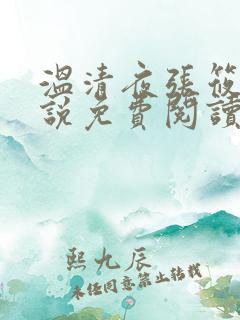 溫清夜張筱
說免費閱讀
熙九辰
未经同意禁止转载